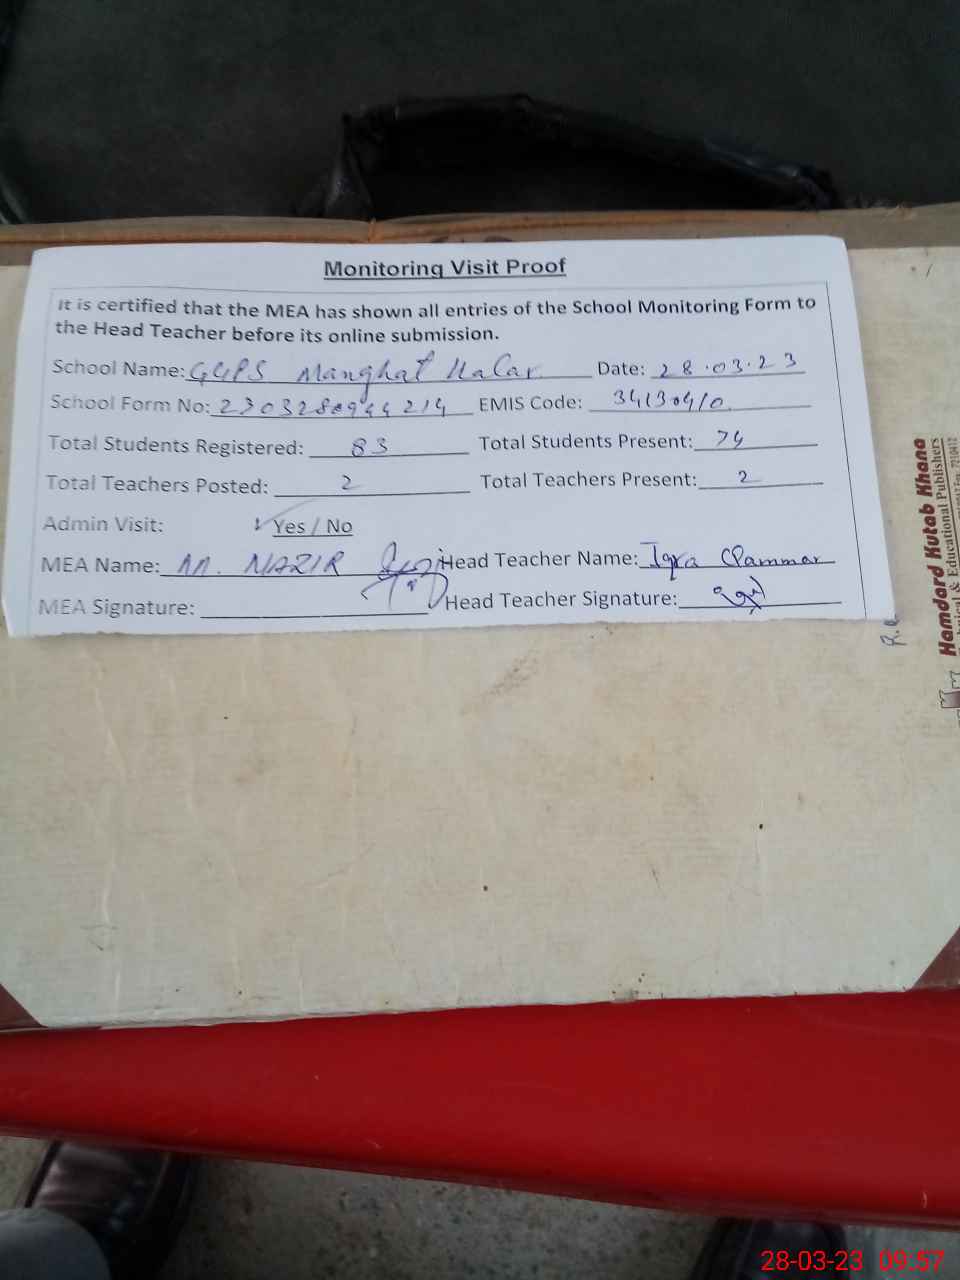 Monitoring Visit Proof
It is certified that the MEA has shown all entries of the School Monitoring Form to
the Head Teacher before its online submission.
School Name: GGPS Manghat Date: 28.03.23
School Form No: EMIS Code: 34130410
Total Students Registered: 83 Total Students Present: 74
Total Teachers Posted: 2 Total Teachers Present: 2
Admin Visit: ✓ Yes / No
MEA Name: M. NAZIR Head Teacher Name: Iqra
MEA Signature: Head Teacher Signature:
Hamdard Kutab Khana
& Educational Publishers
28-03-23 09:57